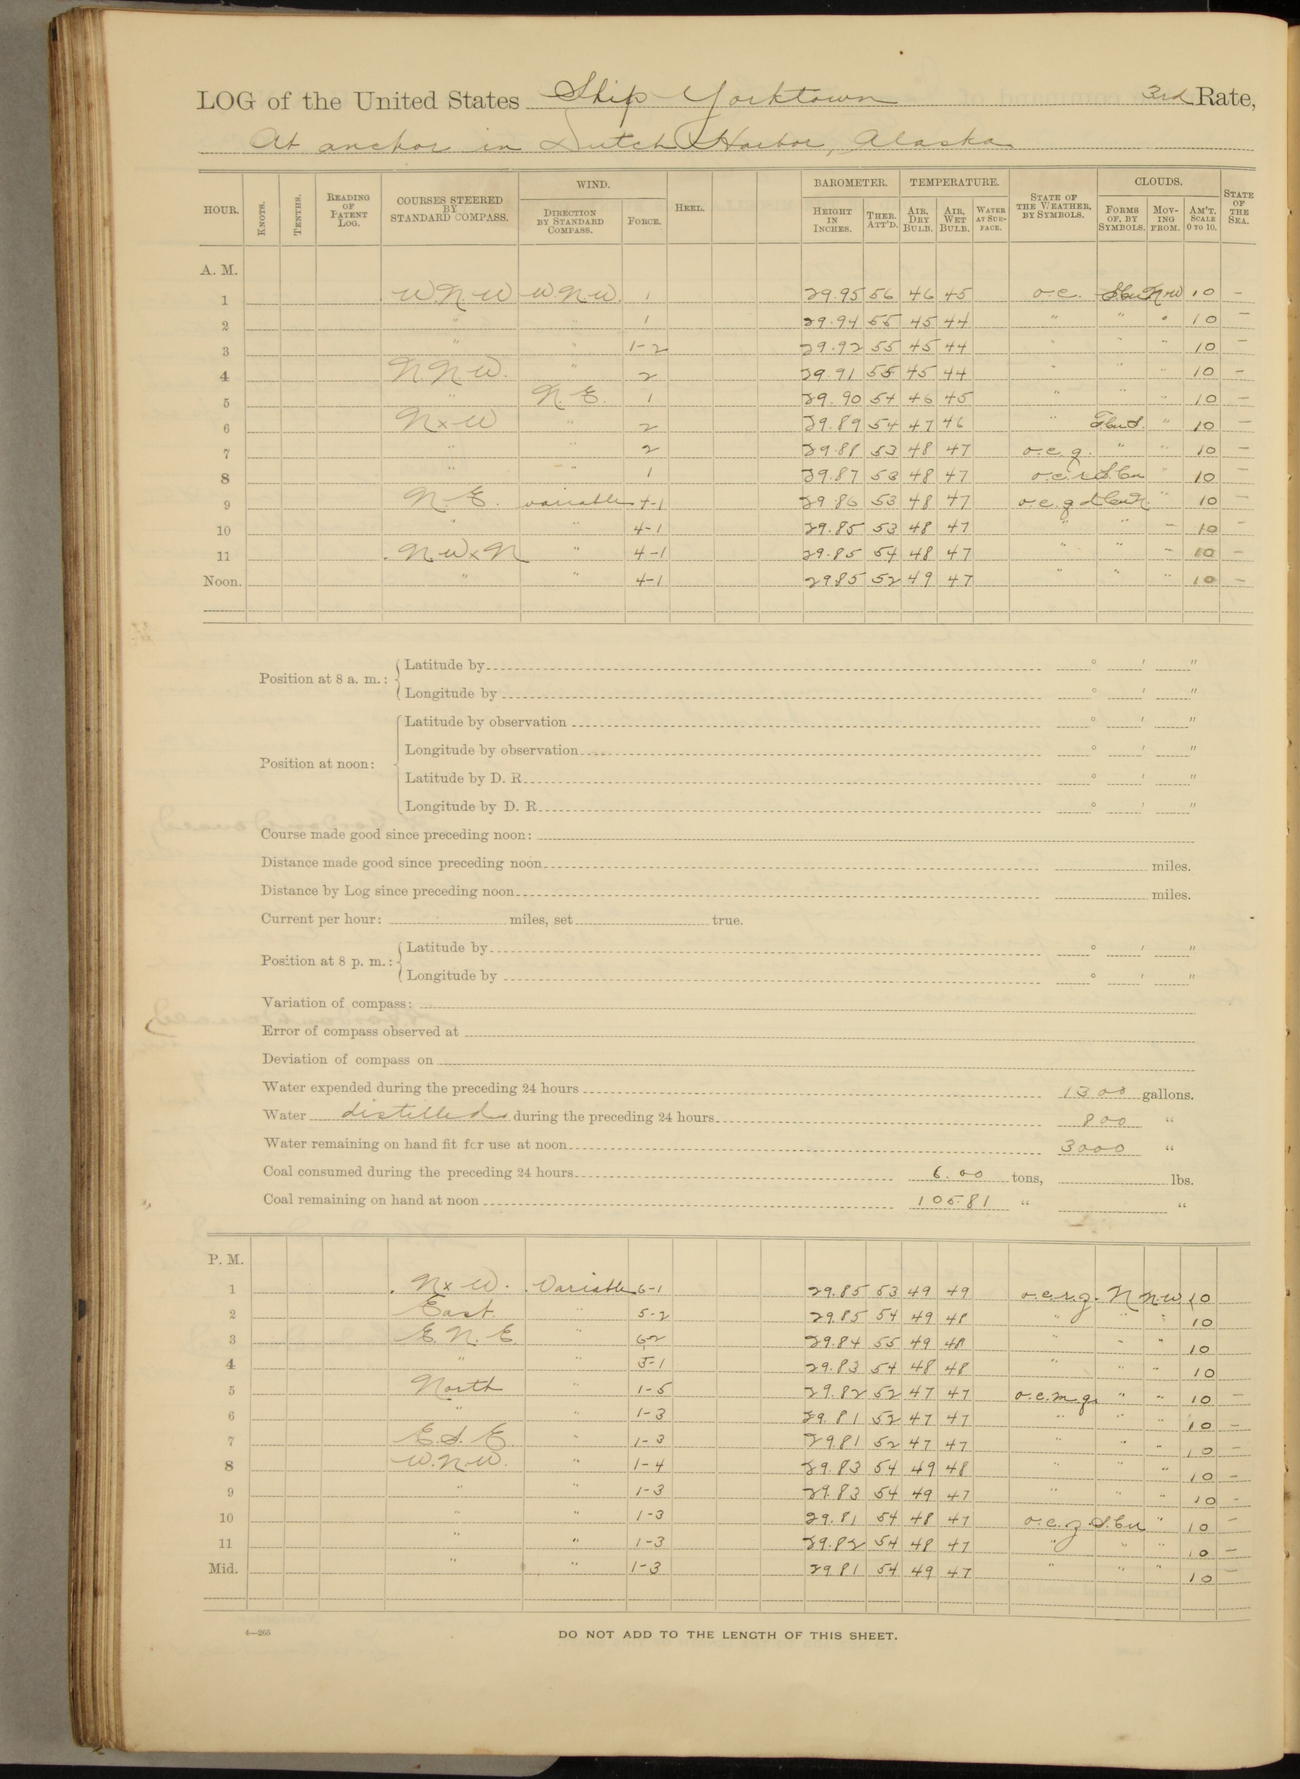 LOG of the United States Ship Yorktown 3rd Rate,
At anchor in Dutch Harbor, Alaska
HOUR. KNOTS. TENTHS. READING OF PATENT LOG. COURSES STEERED BY STANDARD COMPASS. WIND. DIRECTION BY STANDARD COMPASS. FORCE. HEEL. BAROMETER. HEIGHT IN INCHES. THER. ATT'D. TEMPERATURE. AIR, DRY BULB. AIR, WET BULB. WATER AT SURFACE. STATE OF THE WEATHER, BY SYMBOLS. CLOUDS. FORMS OF, BY SYMBOLS. MOVING FROM. AM'T. SCALE 0 TO 10. STATE OF THE SEA.
A. M.
1 W.N.W W.N.W. 1 29.95 56 46 45 o.c. S.Cu N.W 10 —
2 " " 1 29.94 55 45 44 " " " 10 —
3 " " 1-2 29.92 55 45 44 " " " 10 —
4 N.N.W. " 2 29.91 55 45 44 " " " 10 —
5 " N.E. 1 29.90 54 46 45 " " " 10 —
6 N x W " 2 29.89 54 47 46 " " 10 —
7 " " 2 29.88 53 48 47 o.c.g. " " 10 —
8 " " 1 29.87 53 48 47 o.c.r. S.Cu " 10 —
9 N.E. variable 4-1 29.86 53 48 47 o.c.g.d. Cu.N. " 10 —
10 " " 4-1 29.85 53 48 47 " " " 10 —
11 N.W x N " 4-1 29.85 54 48 47 " " " 10 —
Noon. " " 4-1 29.85 52 49 47 " " " 10 —
Position at 8 a. m.: Latitude by ° ′ ″
Longitude by ° ′ ″
Position at noon: Latitude by observation ° ′ ″
Longitude by observation ° ′ ″
Latitude by D. R. ° ′ ″
Longitude by D. R. ° ′ ″
Course made good since preceding noon:
Distance made good since preceding noon miles.
Distance by Log since preceding noon miles.
Current per hour: miles, set true.
Position at 8 p. m.: Latitude by ° ′ ″
Longitude by ° ′ ″
Variation of compass:
Error of compass observed at
Deviation of compass on
Water expended during the preceding 24 hours 1300 gallons.
Water distilled during the preceding 24 hours 800 "
Water remaining on hand fit for use at noon 3000 "
Coal consumed during the preceding 24 hours 6.00 tons, lbs.
Coal remaining on hand at noon 105.81 " "
P. M.
1 N x W. Variable 6-1 29.85 53 49 49 o.c.r.g. N N.W 10
2 East. " 5-2 29.85 54 49 48 " " " 10
3 E.N.E. " 6-2 29.84 55 49 48 " " " 10
4 " " 5-1 29.83 54 48 48 " " " 10
5 North " 1-5 29.82 52 47 47 o.c.m.g. " " 10 —
6 " " 1-3 29.81 52 47 47 " " " 10 —
7 E.S.E " 1-3 29.81 52 47 47 " " " 10 —
8 W.N.W. " 1-4 29.83 54 49 48 " " " 10 —
9 " " 1-3 29.83 54 49 47 " " " 10 —
10 " " 1-3 29.81 54 48 47 o.c.g S.Cu " 10 —
11 " " 1-3 29.82 54 48 47 " " " 10 —
Mid. " " 1-3 29.81 54 49 47 " " " 10 —
4—265
DO NOT ADD TO THE LENGTH OF THIS SHEET.